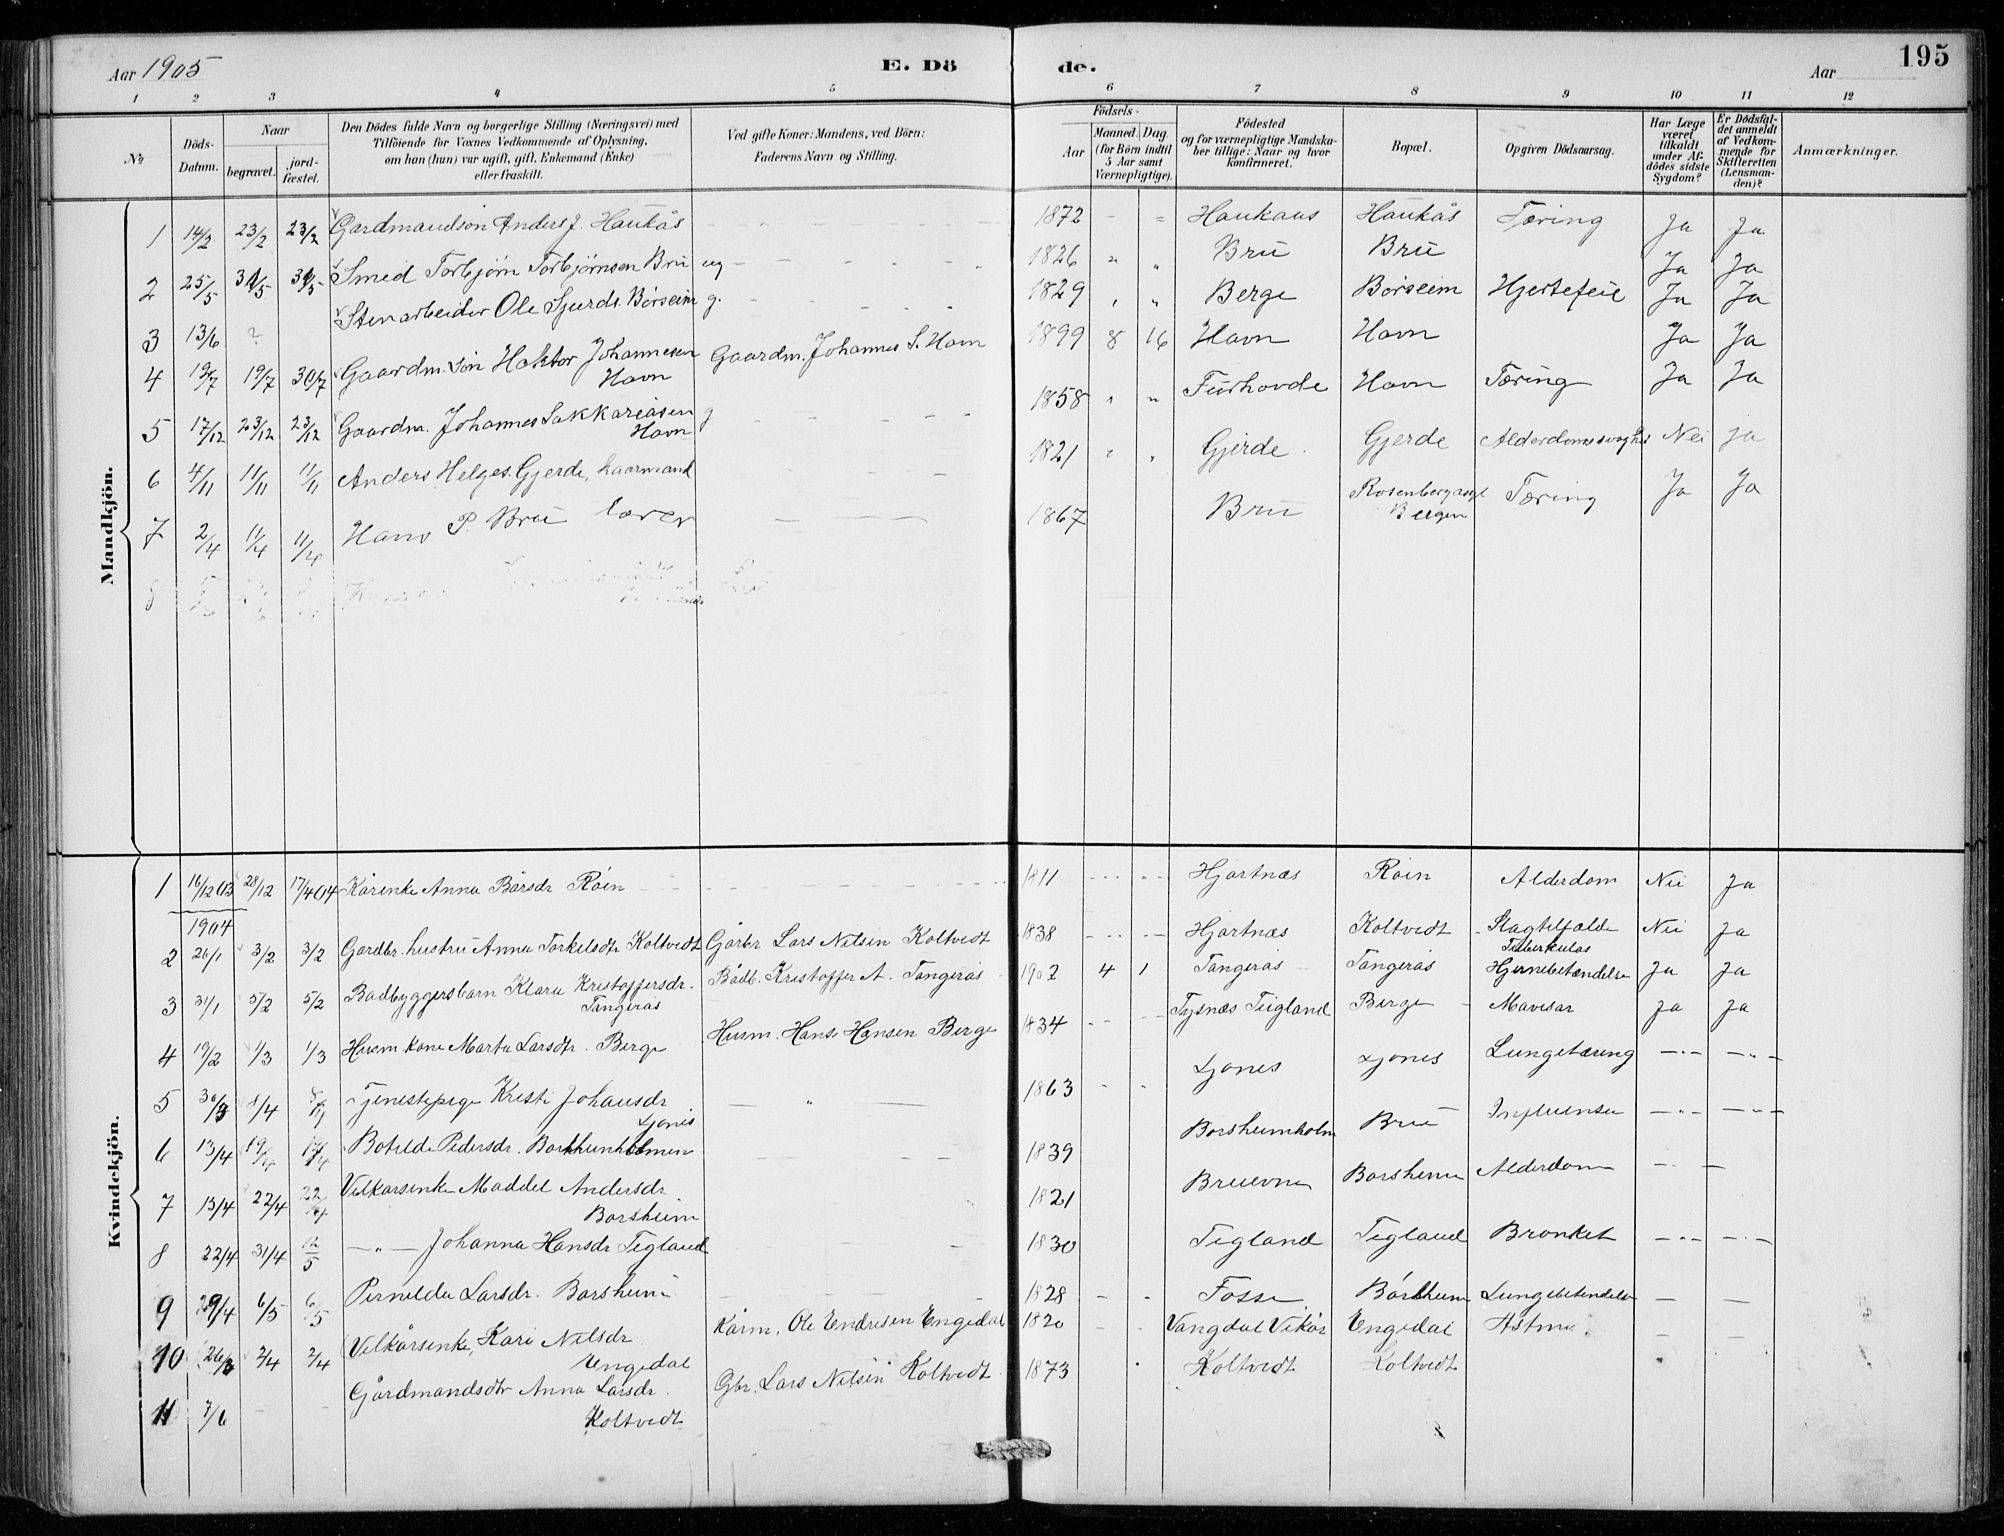 Aar 1905 E. Dö de. Aar 195
1 2 3 4 5 6 7 8 9 10 11 12
No Döds-Datum. Naar begravet. jord-fæstet. Den Dödes fulde Navn og borgerlige Stilling (Næringsvei) med Tilföiende för Voxnes Vedkommende af Oplysning, om han (hun) var ugift, gift, Enkemand (Enke) eller fraskilt. Ved gifte Koner: Mandens, ved Börn: Faderens Navn og Stilling. Födsels- Aar Maaned. Dag. (for Börn indtil 5 Aar samt Værnepligtige). Födested og for værnepligtige Mandska-ber tillige: Naar og hvor konfirmeret. Bopæl. Opgiven Dödsaarsag. Har Læge været tilkaldt under Af-dödes sidste Sygdom? Er Dödsfal-det anmeldt af Vedkom-mende for Skifteretten (Lensman-den)? Anmærkninger.
Mandkjön.
1 14/2 23/2 23/2 Gardmandsön Anders J. Haukås 1872 Haukaas Haukås Tæring Ja Ja
2 25/5 31/5 31/5 Smed Torbjørn Torbjørnsen Bru ug 1826 Bru Bru Ja Ja
3 13/6 ? Stenarbeider Ole Sjurds. Børseim g. 1829 Berge Børseim Hjertefeil Ja Ja
4 19/7 30/7 Gaardm. søn Johannesen Havn Gaardm. Johannes S. Havn 1899 8 16 Havn Havn Ja Ja
5 17/12 23/12 23/12 Gaardm. Johannes Sakkariasen Havn g 1858 Furhovde Havn Tæring Ja Ja
6 4/11 11/11 11/11 Anders Helges. Gjerde, kaarmand 1821 Gjerde Gjerde Alderdomssvaghd Nei ja
7 2/4 11/4 11/4 Hans P. Bru Lærer 1867 Bru Rosenbergasyl Bergen Tæring Ja Ja
8
Kvindekjön.
1 16/12 03 28/12 17/4 04 Kårenke Anna Bårsdr Røen 1811 Hjartnæs Røen Alderdom Nei Ja
1904
2 26/1 3/2 3/2 Gardbr. hustru Anna Torkelsdtr Koltvedt Gårbr Lars Nilsen Koltvedt 1838 Hjartnæs Koltvedt Slagtilfælde Nei Ja
3 31/1 5/2 5/2 Badbyggersbarn Klara Kristoffersdr. Tangerås Bådb. Kristoffer A. Tangerås 1902 4 1 Tangerås Tangerås Tuberkuløs Hjernebetændelse Ja Ja
4 19/2 1/3 1/3 Husm kone Marta Larsdtr. Berge Husm. Hans Hansen Berge 1834 Tysnæs Teigland Berge Mavesar Ja Ja
5 30/3 8/4 8/4 Tjenestepige Kristi Johansdr Ljones 1863 Ljones Ljones Lungetæring
6 13/4 19/4 Botilde Pedersdr. Borsheimholmen 1839 Borsheimholm Bru Influensa
7 13/4 22/4 22/4 Vilkårsenke Maddel Andersdr. Borsheim 1821 Borsheim Alderdom
8 22/4 31/4 12/5 — " — Johanna Hansdr Tegland 1830 Tegland Tegland Bronket
9 29/4 6/5 6/5 Pernilda Larsdr. Borsheim 1828 Fosse Børsheim Lungebetændelse
10 26/3 2/4 2/4 Vilkårsenke, Kari Nilsdr Engedal Kårm. Ole Endresen Engedal 1820 Vangdal Vikør Engedal Astma
11 7/6 Gårdmandsdtr Anna Larsdr. Koltvedt Gbr. Lars Nilsen Koltvedt 1873 Koltvedt Koltvedt